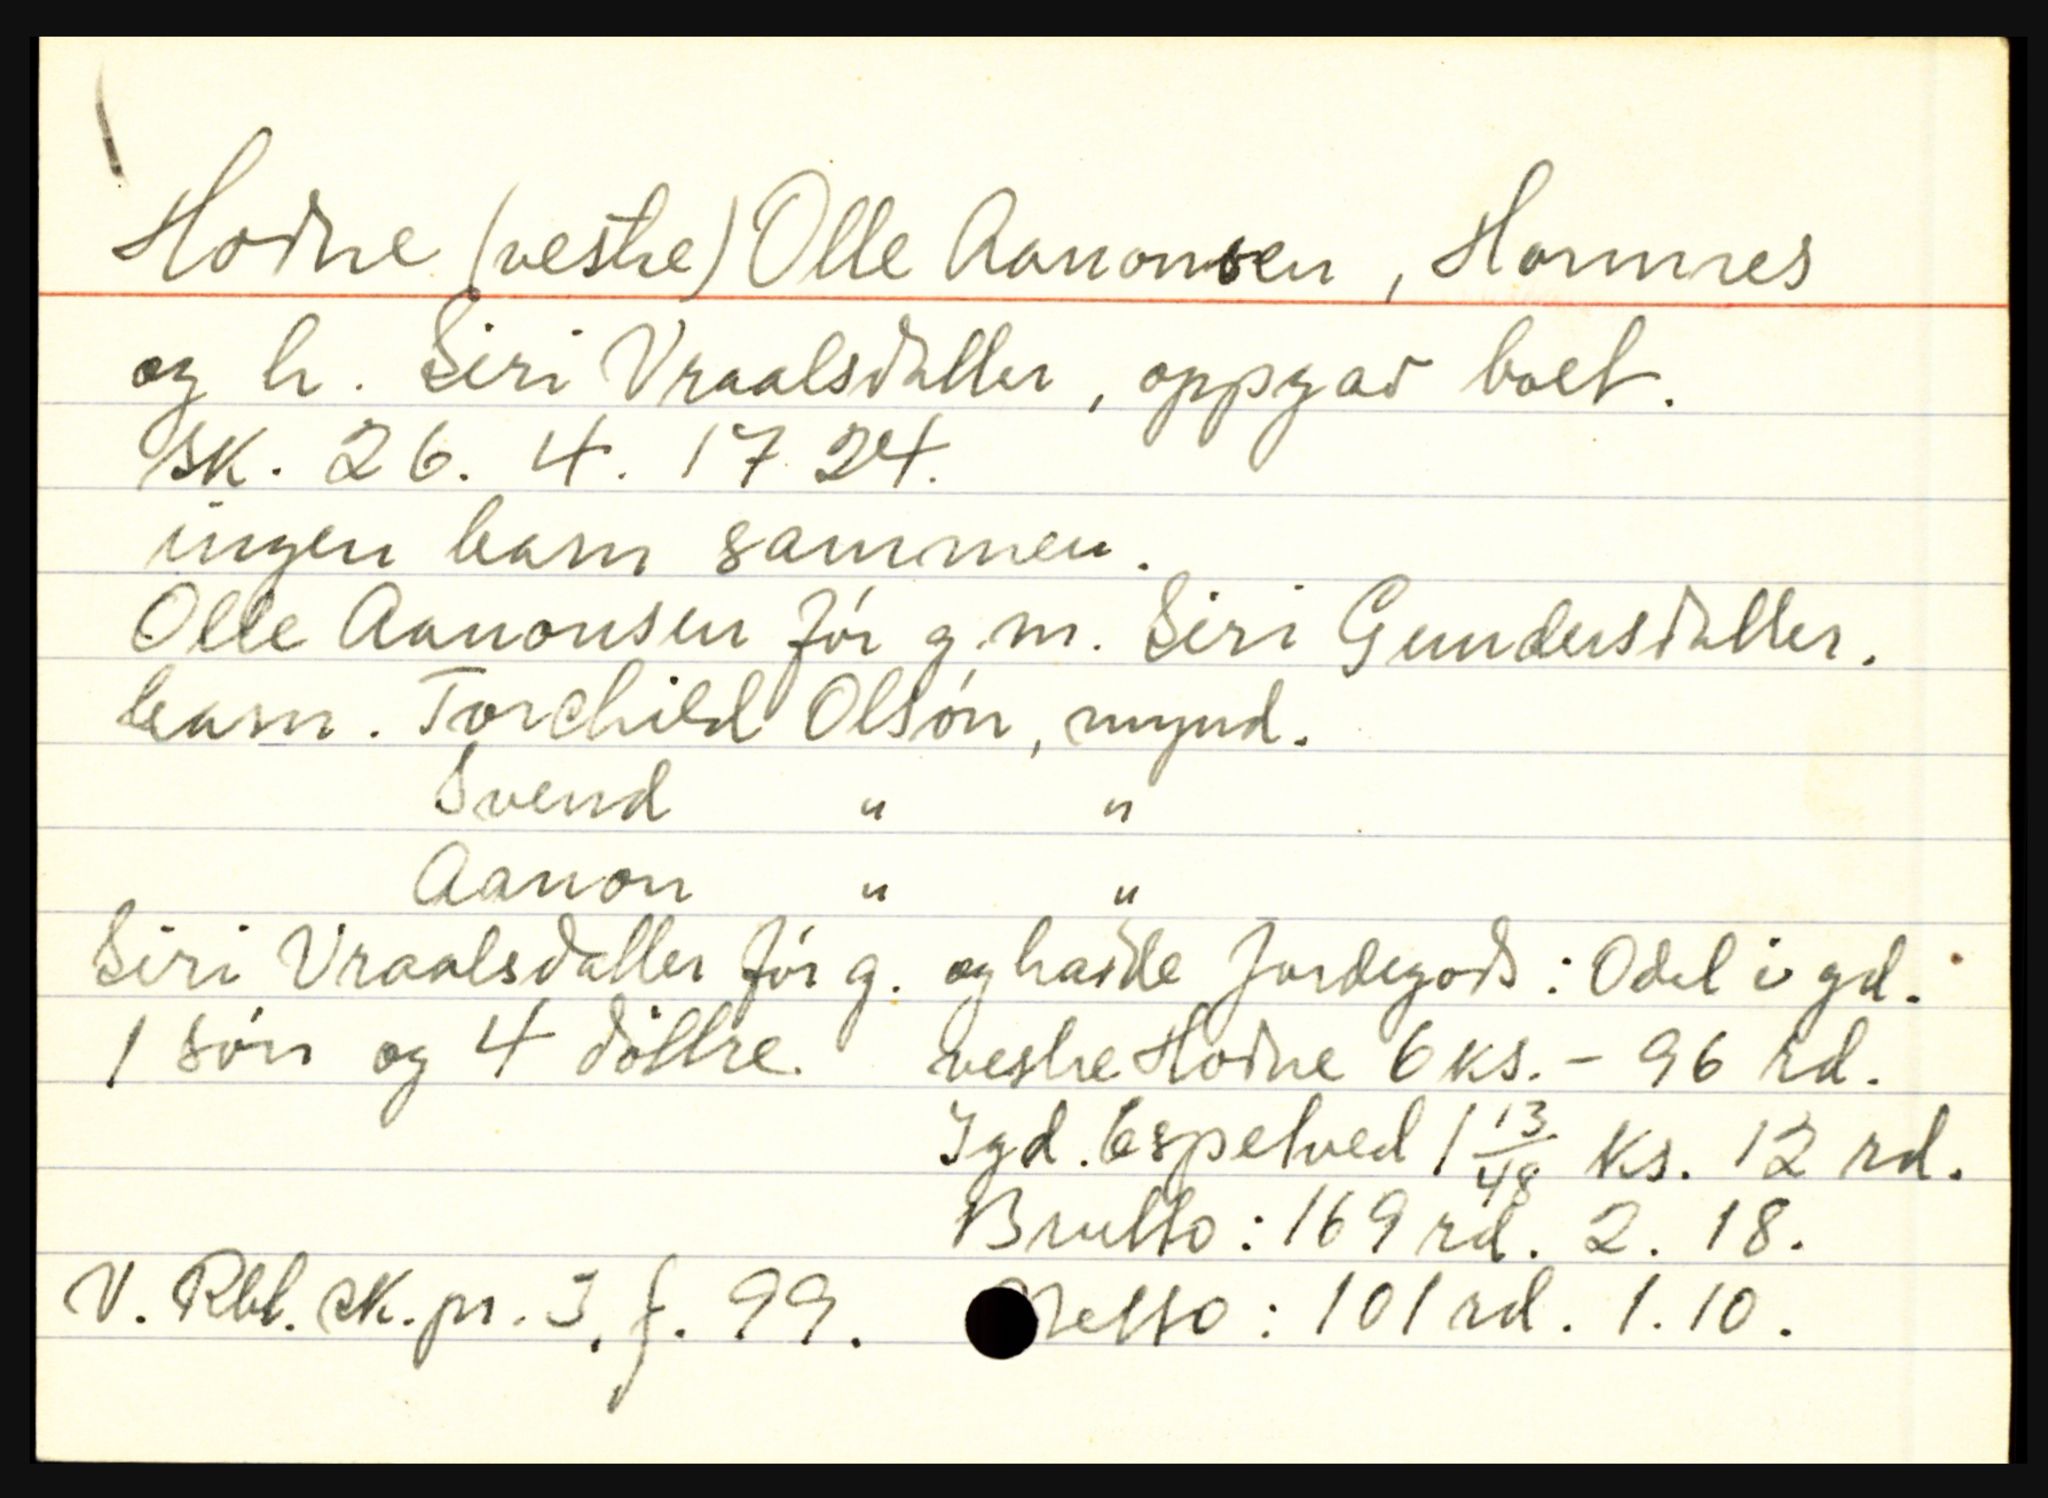 Hodne (vestre) Olle Aanonsen, Hornnes
og h. Siri Vraalsdatter, oppgav boet.
sk. 26. 4. 1724.
ingen barn sammen.
Olle Aanonsen før g.m. Siri Gundersdatter.
barn. Torchild Olsøn, mynd.
Svend " "
Aanon " "
Siri Vraalsdatter før g. og havde
1 søn og 4 døttre.
Jordegods: Odel i gd.
vestre Hodne 6 ks. - 96 rd.
I gd. Espetved 1 13/48 ks. 12 rd.
Brutto: 169 rd. 2. 18.
Netto: 101 rd. 1. 10.
V. Rbl. sk. pr. 3, f. 99.